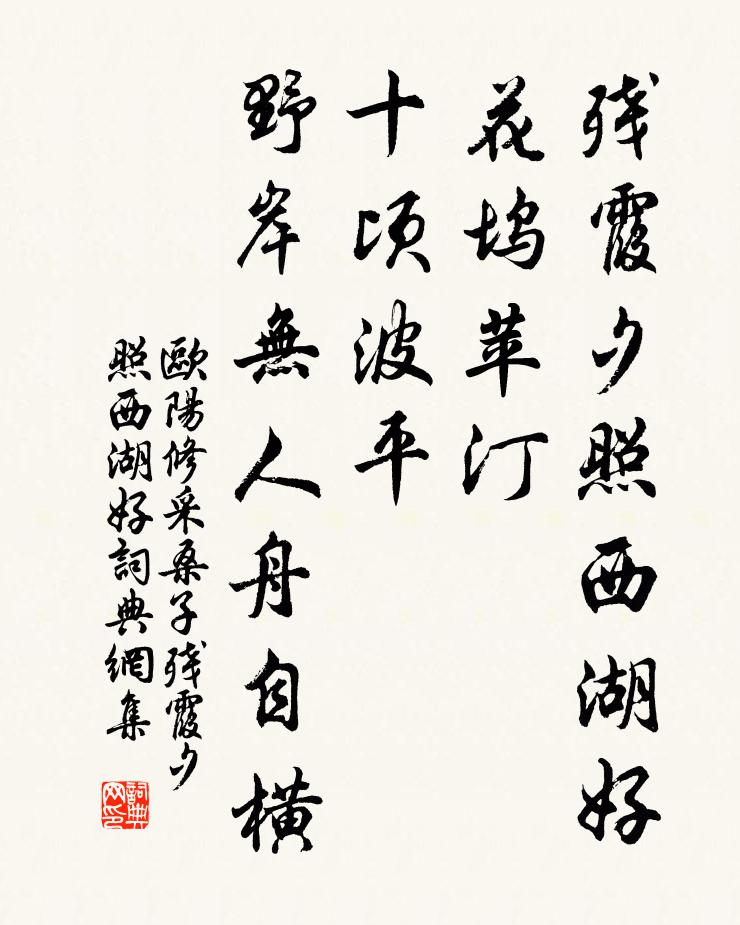 残霞夕照西湖好
花坞苹汀
十顷波平
野岸無人舟自横
歐陽修采桑子残霞夕
照西湖好詞典網集
詞典
网印